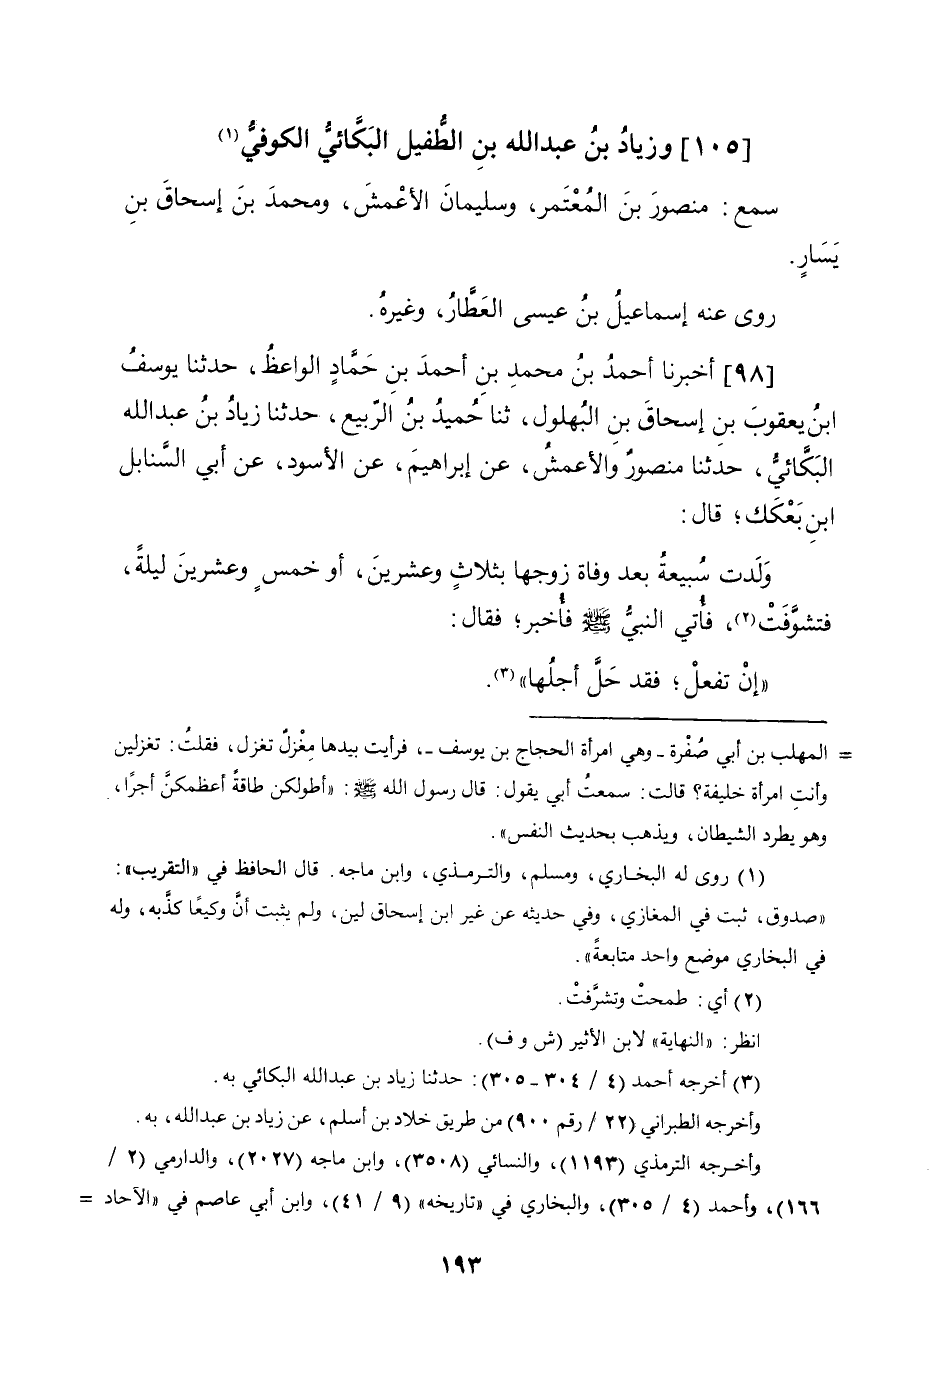 [١٠٥] وزيادُ بنُ عبدالله بنِ الطُّفيل البَكَّائيُّ الكوفيُّ(١)
سمع: منصورَ بنَ المُعْتَمر، وسليمانَ الأعْمشَ، ومحمدَ بنَ إسحاقَ بنِ
يَسَارٍ.
روى عنه إسماعيلُ بنُ عيسى العَطَّارُ، وغيرهُ.
[٩٨] أخبرنا أحمدُ بنُ محمدِ بنِ أحمدَ بنِ حَمَّادٍ الواعظُ، حدثنا يوسفُ
ابنُ يعقوبَ بنِ إسحاقَ بنِ البُهلول، ثنا حُميدُ بنُ الرّبيع، حدثنا زيادُ بنُ عبدالله
البَكَّائيُّ، حدثنا منصورٌ والأعمشُ، عن إبراهيمَ، عن الأسود، عن أبي السَّنابل
ابنِ بَعْكَك؛ قال:
وَلَدت سُبيعةُ بعد وفاة زوجها بثلاثٍ وعشرينَ، أو خمسٍ وعشرينَ ليلةً،
فتشوَّفَتْ(٢)، فأُتي النبيُّ ﷺ فأُخبر؛ فقال:
«إنْ تفعلْ؛ فقد حَلَّ أجلُها»(٣).
= المهلب بن أبي صُفْرة ـ وهي امرأة الحجاج بن يوسف ـ، فرأيت بيدها مِغْزلٌ تغزل، فقلتُ: تغزلين
وأنتِ امرأة خليفة؟ قالت: سمعتُ أبي يقول: قال رسول الله ﷺ: «أطولكن طاقةً أعظمكنَّ أجرًا،
وهو يطرد الشيطان، ويذهب بحديث النفس».
(١) روى له البخاري، ومسلم، والترمذي، وابن ماجه. قال الحافظ في «التقريب»:
«صدوق، ثبت في المغازي، وفي حديثه عن غير ابن إسحاق لين، ولم يثبت أنَّ وكيعًا كذَّبه، وله
في البخاري موضع واحد متابعةً».
(٢) أي: طمحتْ وتشرَّفتْ.
انظر: «النهاية» لابن الأثير (ش و ف).
(٣) أخرجه أحمد (٤ / ٣٠٤ ـ ٣٠٥): حدثنا زياد بن عبدالله البكائي به.
وأخرجه الطبراني (٢٢ / رقم ٩٠٠) من طريق خلاد بن أسلم، عن زياد بن عبدالله، به.
وأخرجه الترمذي (١١٩٣)، والنسائي (٣٥٠٨)، وابن ماجه (٢٠٢٧)، والدارمي (٢ /
١٦٦)، وأحمد (٤ / ٣٠٥)، والبخاري في «تاريخه» (٩ / ٤١)، وابن أبي عاصم في «الآحاد =
١٩٣